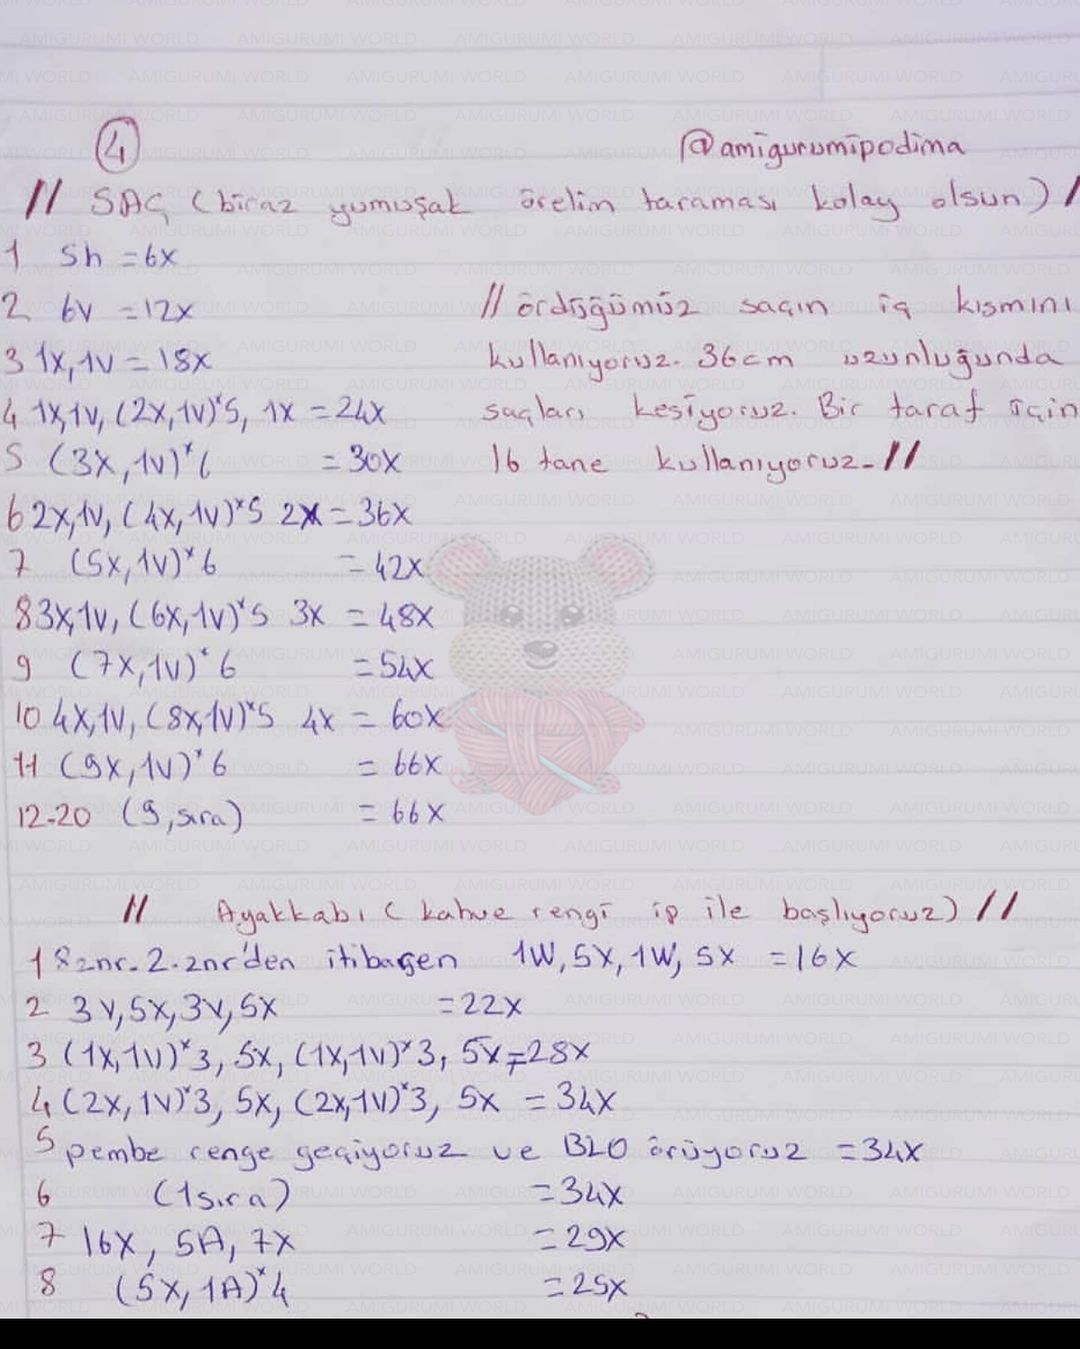 4
@amigurumipodima
// SAÇ (biraz yumuşak örelim taraması kolay olsun) /
1 Sh = 6x
2 6v = 12x
// ördüğümüz saçın iç kısmını
3 1x, 1v = 18x
kullanıyoruz. 36cm uzunluğunda
4 1x, 1v, (2x, 1v)*5, 1x = 24x
saçları kesiyoruz. Bir taraf için
5 (3x, 1v)*6 = 30x
16 tane kullanıyoruz. //
6 2x, 1v, (4x, 1v)*5 2x = 36x
7 (5x, 1v)*6 = 42x
8 3x, 1v, (6x, 1v)*5 3x = 48x
9 (7x, 1v)*6 = 54x
10 4x, 1v, (8x, 1v)*5 4x = 60x
11 (9x, 1v)*6 = 66x
12-20 (9, sıra) = 66x
// Ayakkabı ( kahve rengi ip ile başlıyoruz) //
1 8 znr. 2. znr'den itibaren 1W, 5x, 1W, 5x = 16x
2 3v, 5x, 3v, 5x = 22x
3 (1x, 1v)*3, 5x, (1x, 1v)*3, 5x = 28x
4 (2x, 1v)*3, 5x, (2x, 1v)*3, 5x = 34x
5 pembe renge geçiyoruz ve BLO örüyoruz = 34x
6 (1 sıra) = 34x
7 16x, 5A, 7x = 29x
8 (5x, 1A)*4 = 25x
AMIGURUMI WORLD